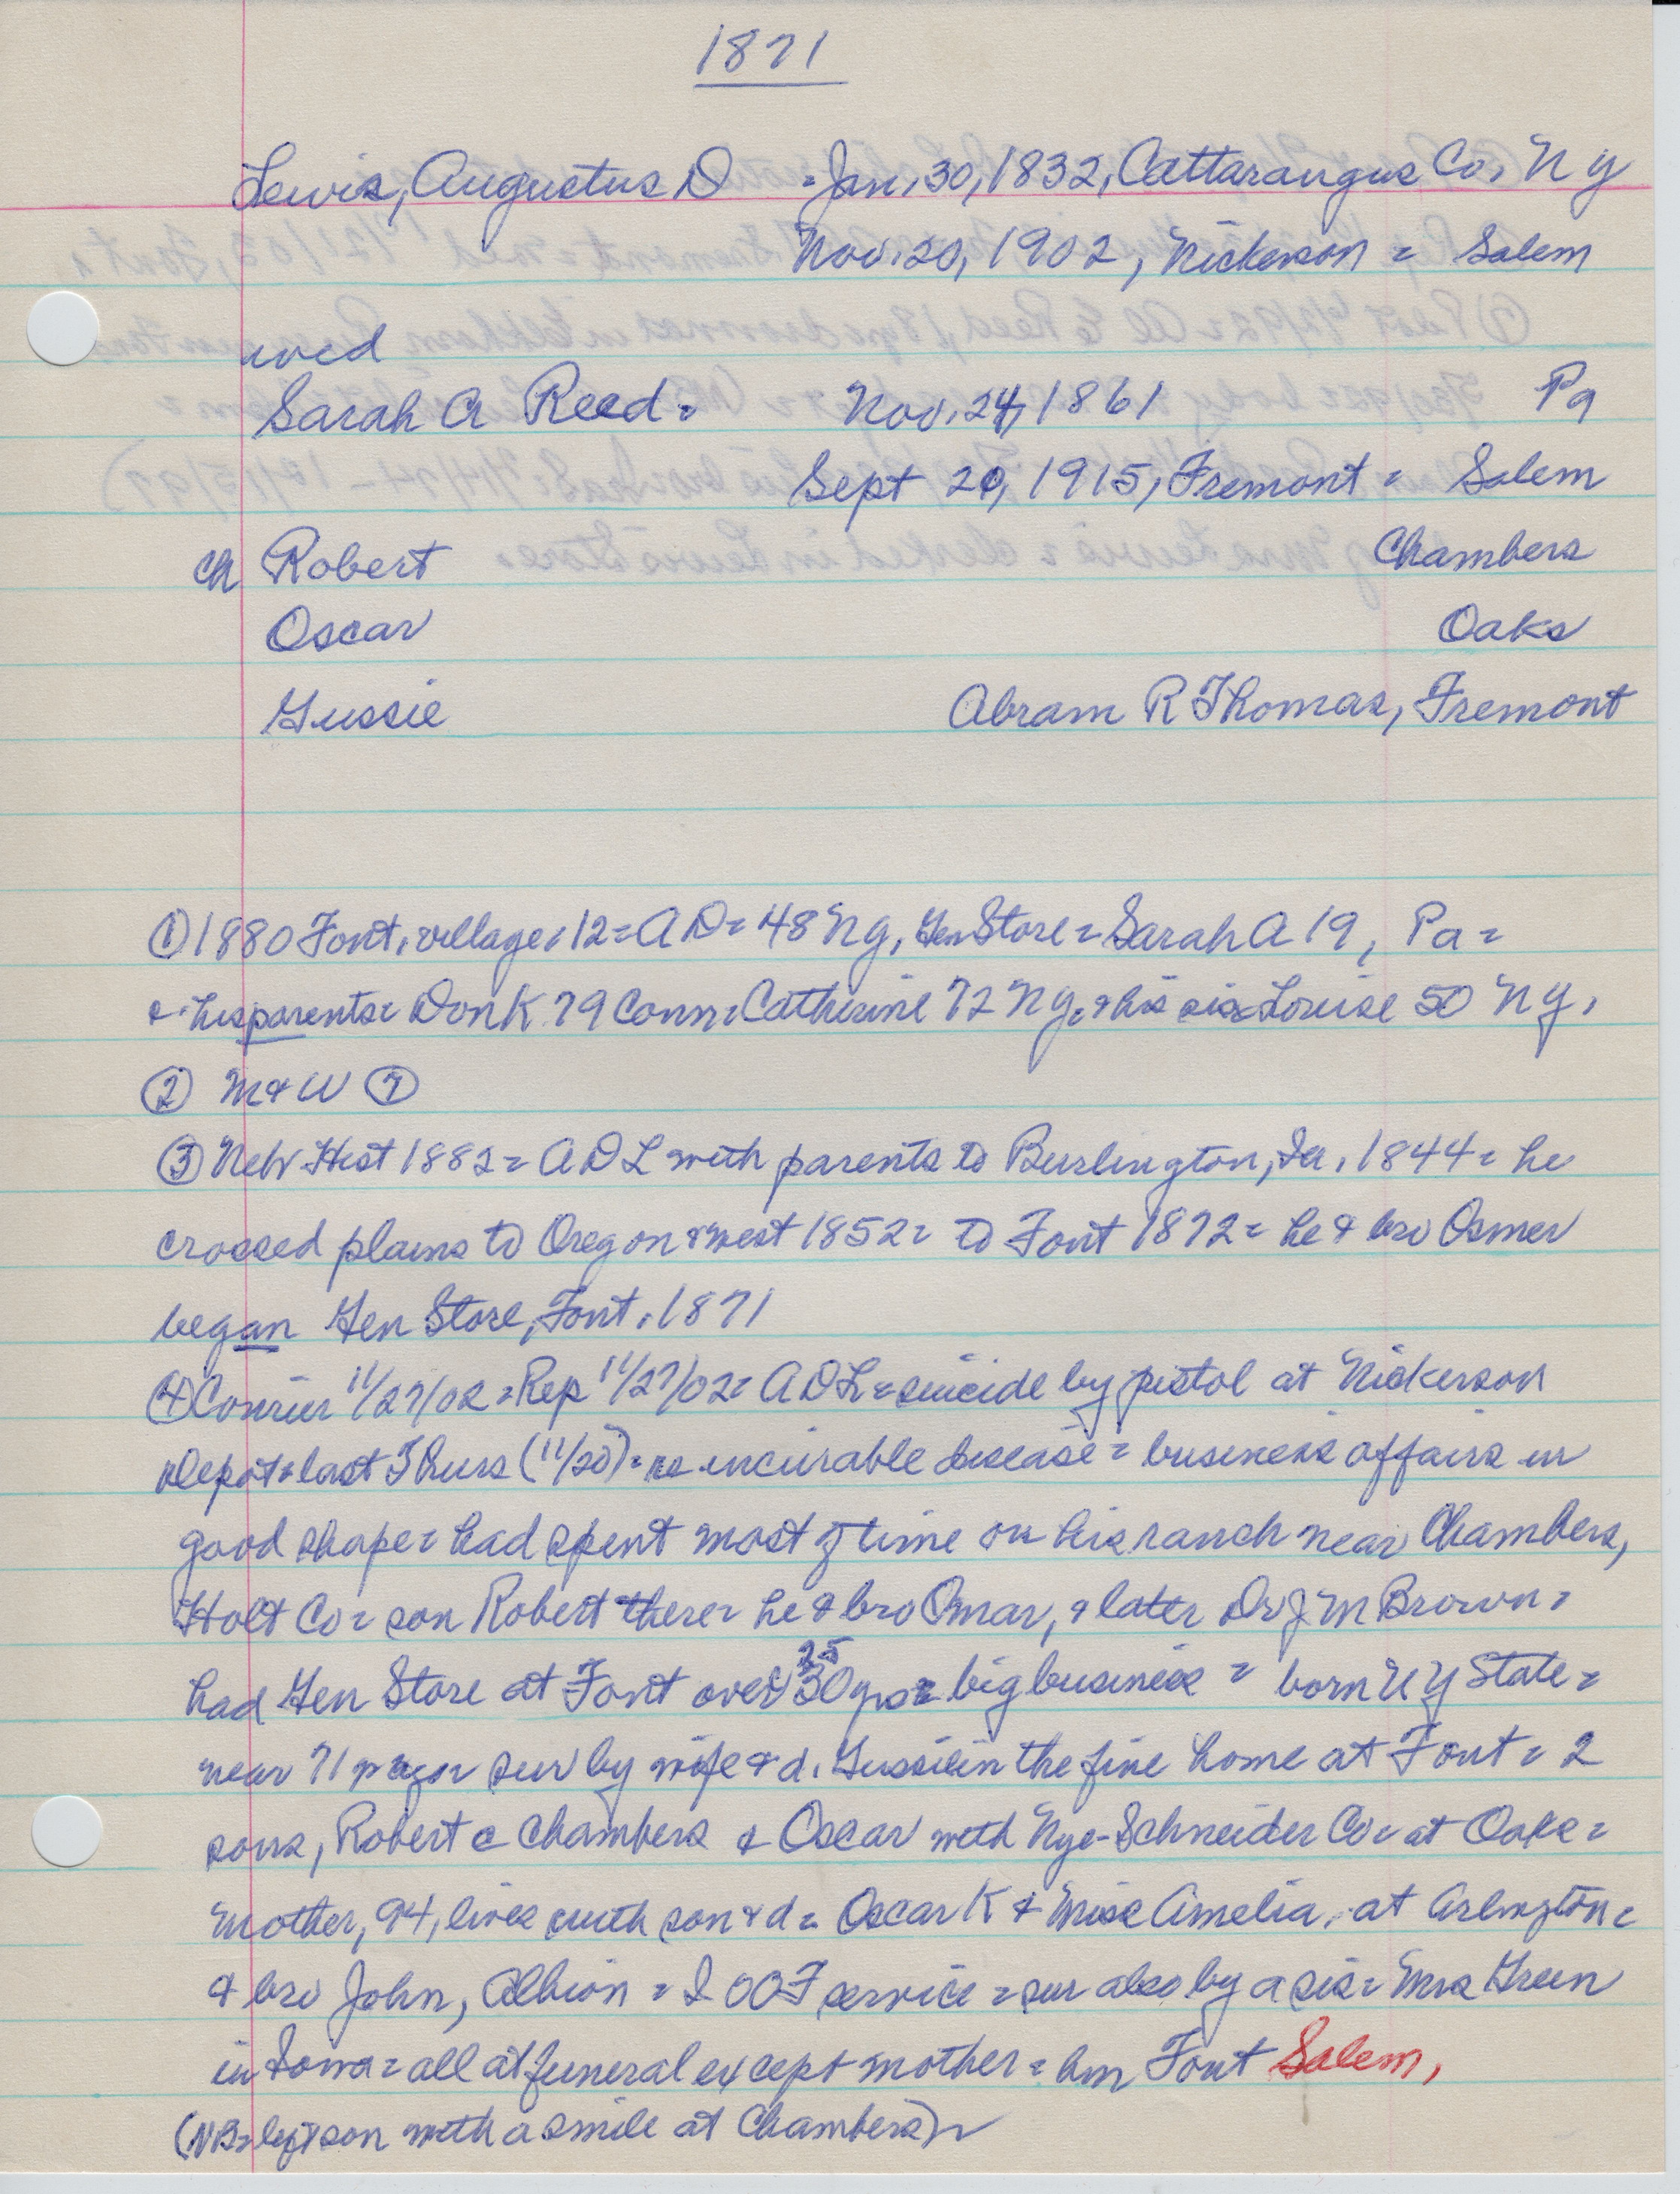 1871
Lewis, Augustus D = Jan. 30, 1832, Cattarangus Co, N Y
Nov. 20, 1902, Nickerson = Salem
wed
Sarah A Reed = Nov. 24, 1861 Pa
Sept 20, 1915, Fremont = Salem
ch Robert Chambers
Oscar Oaks
Gussie Abram R Thomas, Fremont
① 1880 Font. village = 12 = A D = 48 N y, Gen Store = Sarah A 19, Pa =
& his parents = Don K 79 Conn = Catherine 72 N Y, & his sis Louise 50 N Y,
② M & W ⑦
③ Neb Hist 1882 = A D L with parents to Burlington, Ia, 1844 = he
crossed plains to Oregon & west 1852 = to Font 1872 = he & bro Osmer
began Gen Store, Font. 1871
④ Courier 11/27/02 = Rep 11/27/02 = A D L = suicide by pistol at Nickerson
depot = last Thurs (11/20) = incurable disease = business affairs in
good shape = had spent most of time on his ranch near Chambers,
Holt Co = son Robert there = he & bro Omar, & later Dr J M Brown =
had Gen Store at Font over 30 25 yrs = big business = born N Y State =
near 71 sur by wife & d. Gussie in the fine home at Font = 2
sons, Robert @ Chambers & Oscar with Nye-Schneider Co = at Oaks =
mother, 94, lives with son & d = Oscar K & Miss Amelia, at Arlington =
& bro John, Albion = I O O F service = sur also by a sis = Mrs Green
in Iowa = all at funeral except mother = bur Font Salem,
(NB = left son with a smile at Chambers)